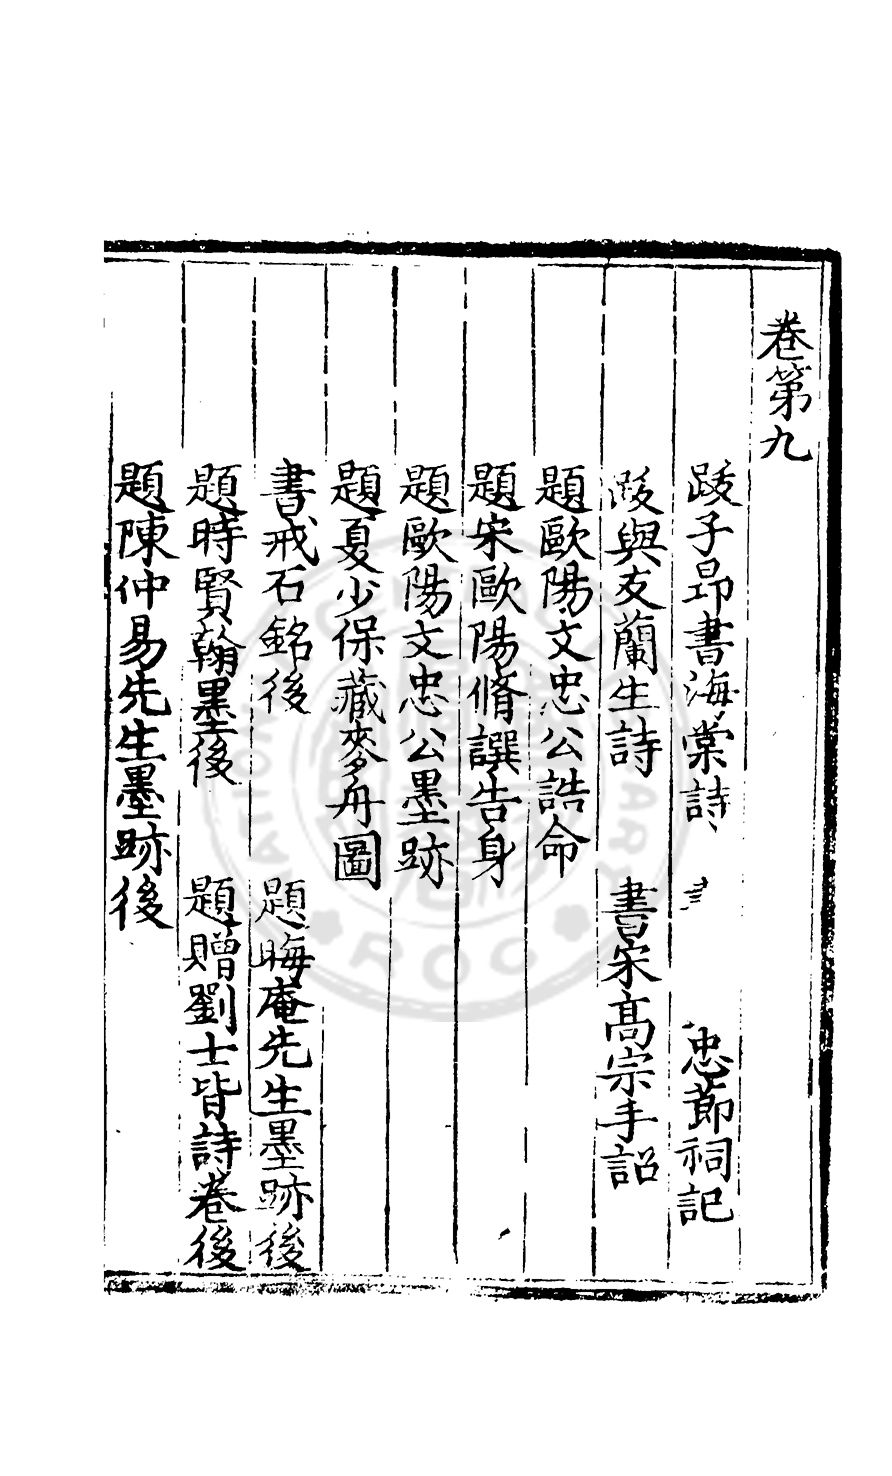 卷第九
跋子昻書海棠詩　書　忠節祠記
跋與友蘭生詩　書宋髙宗手詔
題歐陽文忠公誥命
題宋歐陽脩譔告身
題歐陽文忠公墨跡
題夏少保藏麥舟圖
書戒石銘後　題晦庵先生墨跡後
題時賢翰墨後　題贈劉士皆詩卷後
題陳仲易先生墨跡後